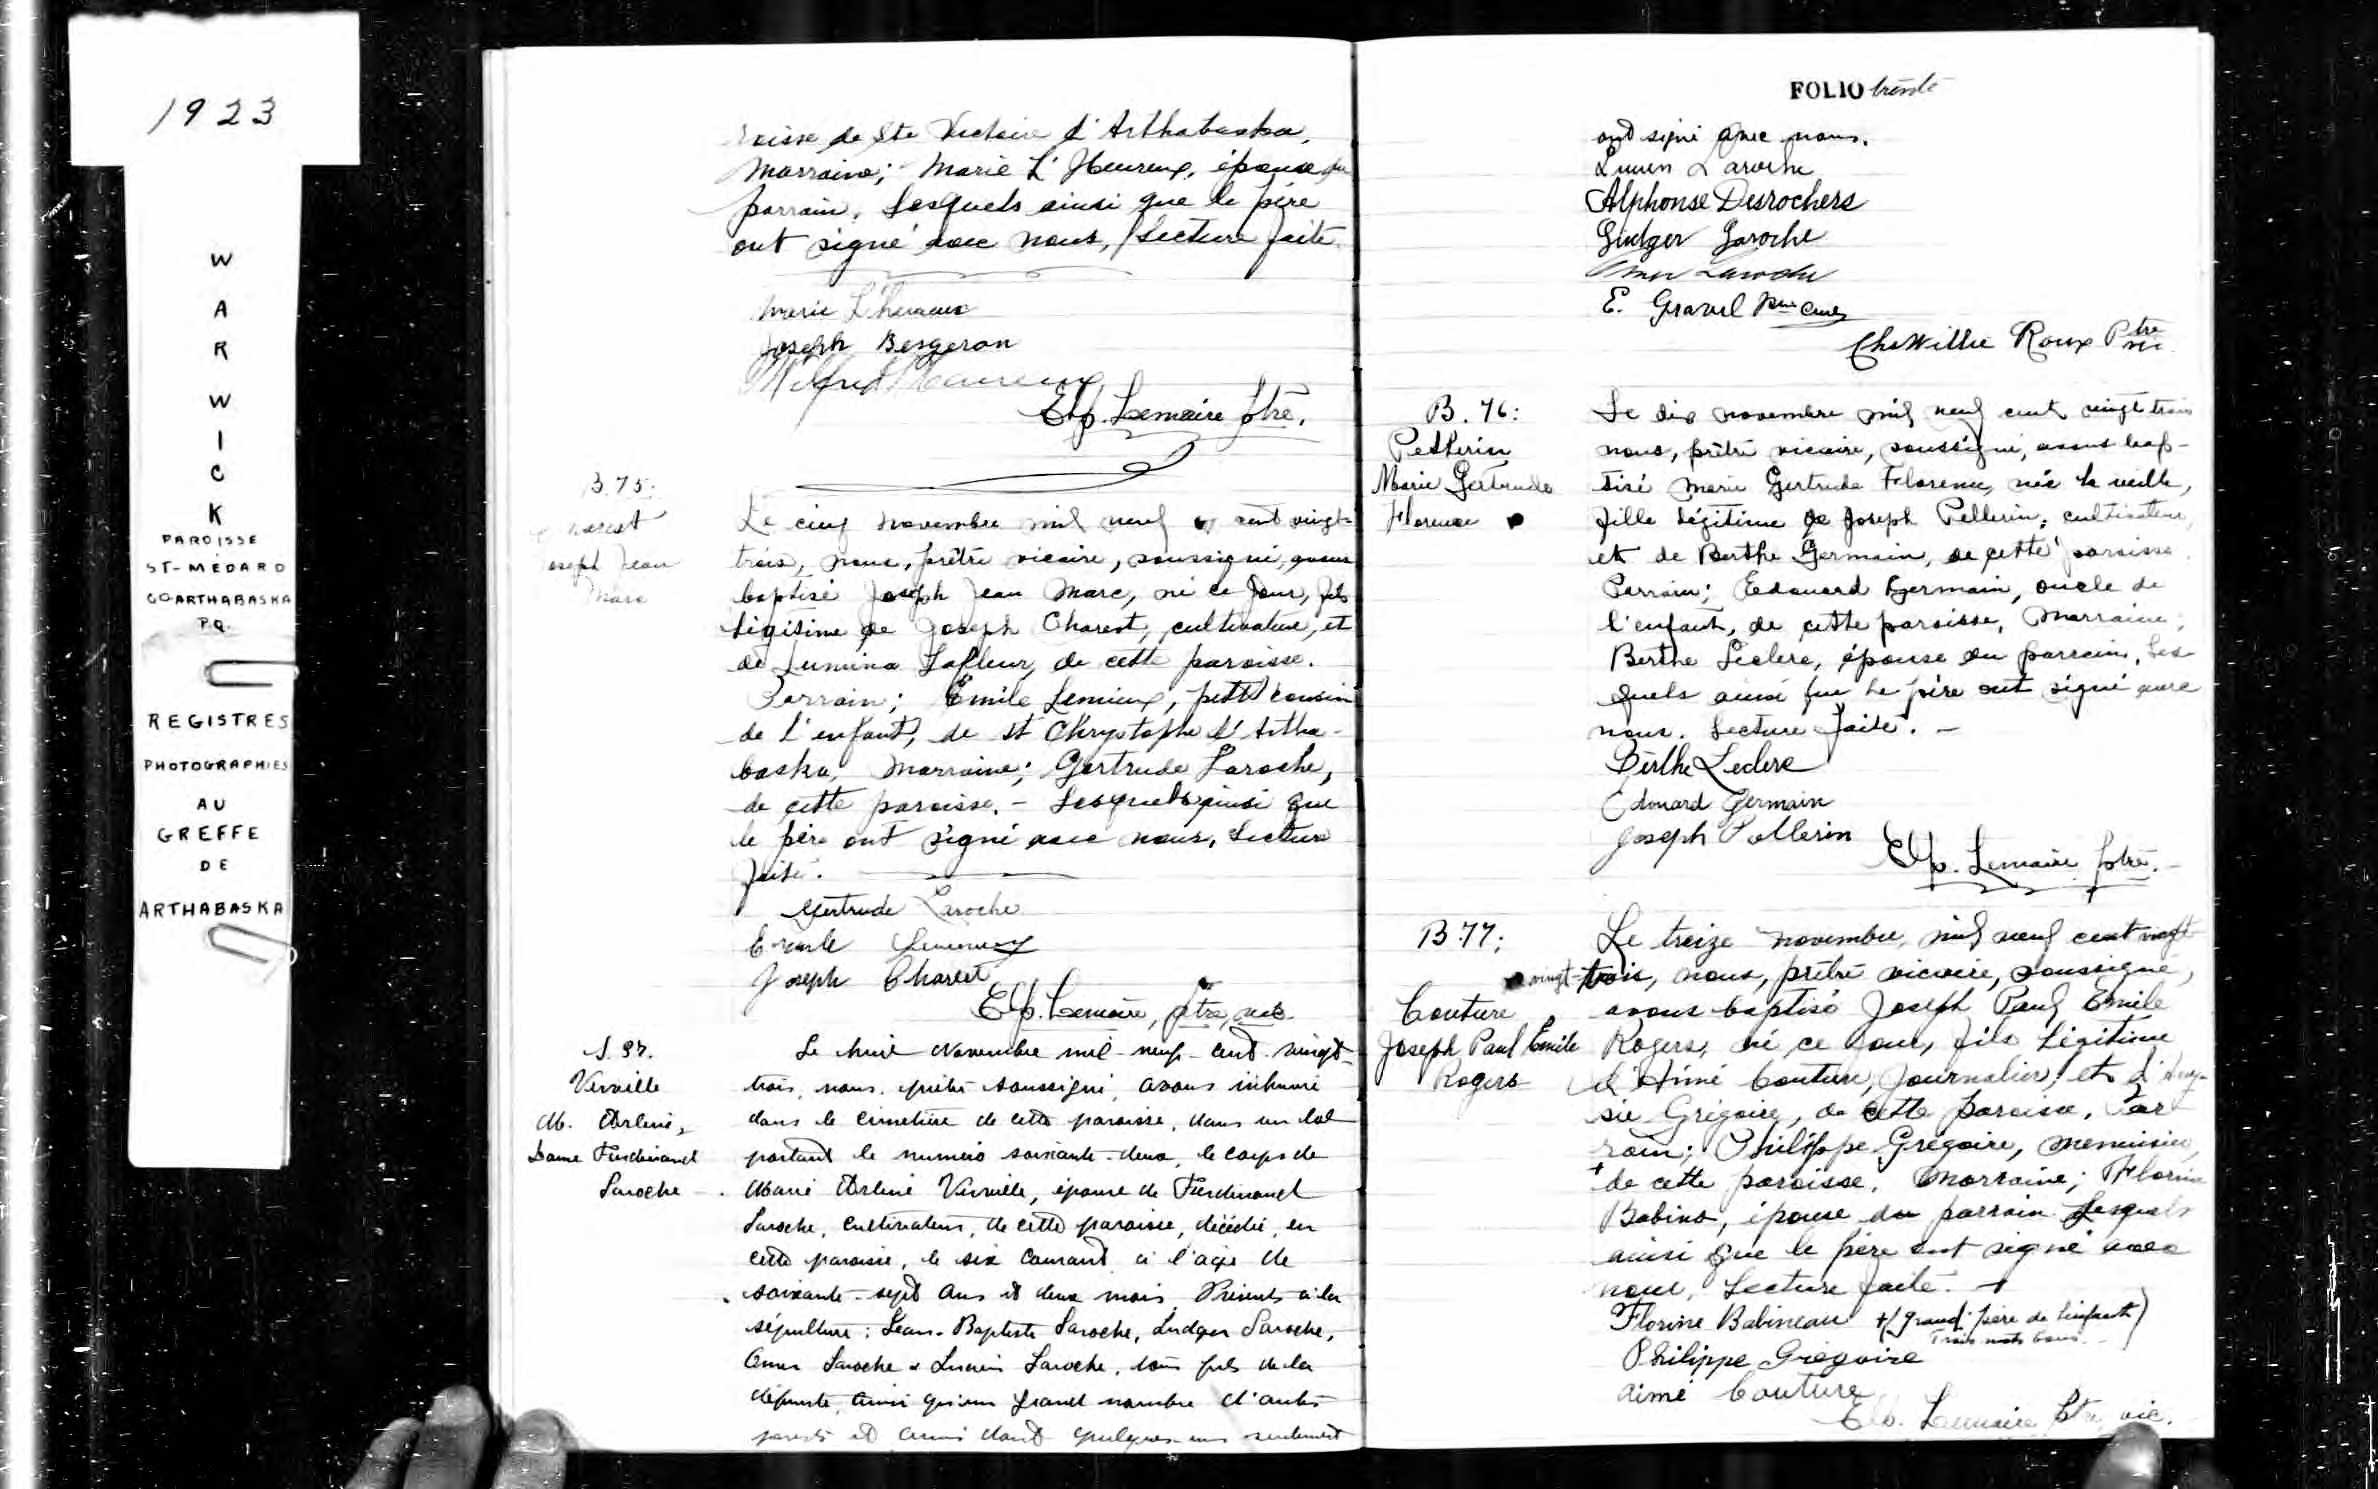 1923
W
A
R
W
I
C
K
PAROISSE
ST-MÉDARD
CO ARTHABASKA
P.Q.
REGISTRES
PHOTOGRAPHIÉS
AU
GREFFE
DE
ARTHABASKA
roisse de Ste Victoire d'Arthabaska,
Marraine; Marie L'Heureux, épouse du
parrain. Lesquels ainsi que le père
ont signé avec nous, Lecture faite.
Marie L'heureux
Joseph Bergeron
Wilfrid L'Heureux
Elp. Lemaire ptre.
B.75:
Charest
Joseph Jean
Marc
Le cinq novembre mil neuf cent vingt-
trois, nous, prêtre vicaire, soussigné, avons
baptisé Joseph Jean Marc, né ce jour, fils
légitime de Joseph Charest, cultivateur, et
de Lumina Lafleur, de cette paroisse.
Parrain; Émile Lemieux, petit cousin
de l'enfant, de St Chrystophe d'Artha-
baska, Marraine; Gertrude Laroche,
de cette paroisse. - Lesquels ainsi que
le père ont signé avec nous, Lecture
faite.
Gertrude Laroche
Emile Lemieux
Joseph Charest
Elp. Lemaire, ptre, vic.
S. 37.
Verville
M. Arline,
Dame Ferdinand
Laroche
Le huit Novembre mil-neuf-cent-vingt-
trois, nous, prêtre soussigné, avons inhumé
dans le cimetière de cette paroisse, dans un lot
portant le numéro soixante-deux, le corps de
Marie Arline Verville, épouse de Ferdinand
Laroche, cultivateur, de cette paroisse, décédée, en
cette paroisse, le six courant à l'âge de
soixante-sept ans et deux mois. Présents à la
sépulture: Jean-Baptiste Laroche, Ludger Laroche,
Omer Laroche & Lucien Laroche, tous fils de la
défunte, ainsi qu'un grand nombre d'autres
parents et amis dont quelques-uns seulement
FOLIO trente
ont signé avec nous.
Lucien Laroche
Alphonse Desrochers
Ludger Laroche
Omer Laroche
E. Gravel Ptre Curé
Chs Willie Roux Ptre vic.
B. 76:
Pellerin
Marie Gertrude
Florence
Le dix novembre mil neuf cent vingt trois
nous, prêtre vicaire, soussigné, avons bap-
tisé Marie Gertrude Florence, née la veille,
fille légitime de Joseph Pellerin, cultivateur,
et de Berthe Germain, de cette paroisse.
Parrain; Edouard Germain, oncle de
l'enfant, de cette paroisse, Marraine;
Berthe Leclerc, épouse du parrain. Les
quels ainsi que le père ont signé avec
nous. Lecture faite. -
Berthe Leclerc
Edouard Germain
Joseph Pellerin
Elp. Lemaire ptre. -
B.77:
Couture
Joseph Paul Emile
Rogers
Le treize novembre, mil neuf cent vingt
vingt-trois, nous, prêtre vicaire, soussigné,
avons baptisé Joseph Paul Emile
Rogers, né ce jour, fils légitime
d'Aimé Couture, journalier, et d'
sie Grégoire, de cette paroisse, Par
rain; Philippe Grégoire, menuisier,
+ de cette paroisse, Marraine; Florine
Babino, épouse du parrain. Lesquels
ainsi que le père ont signé avec
nous, Lecture faite. +
Florine Babineau +/ grand-père de l'enfant)
Trois mots bons. -
Philippe Grégoire
aimé Couture
Elp. Lemaire Ptre, vic.